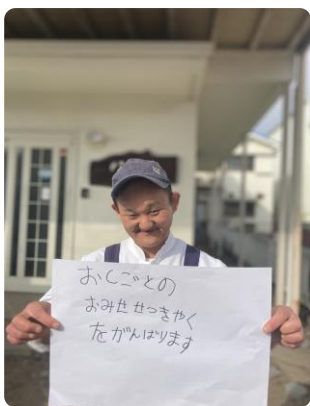 おしごとの
おみせせっきゃく
をがんばります